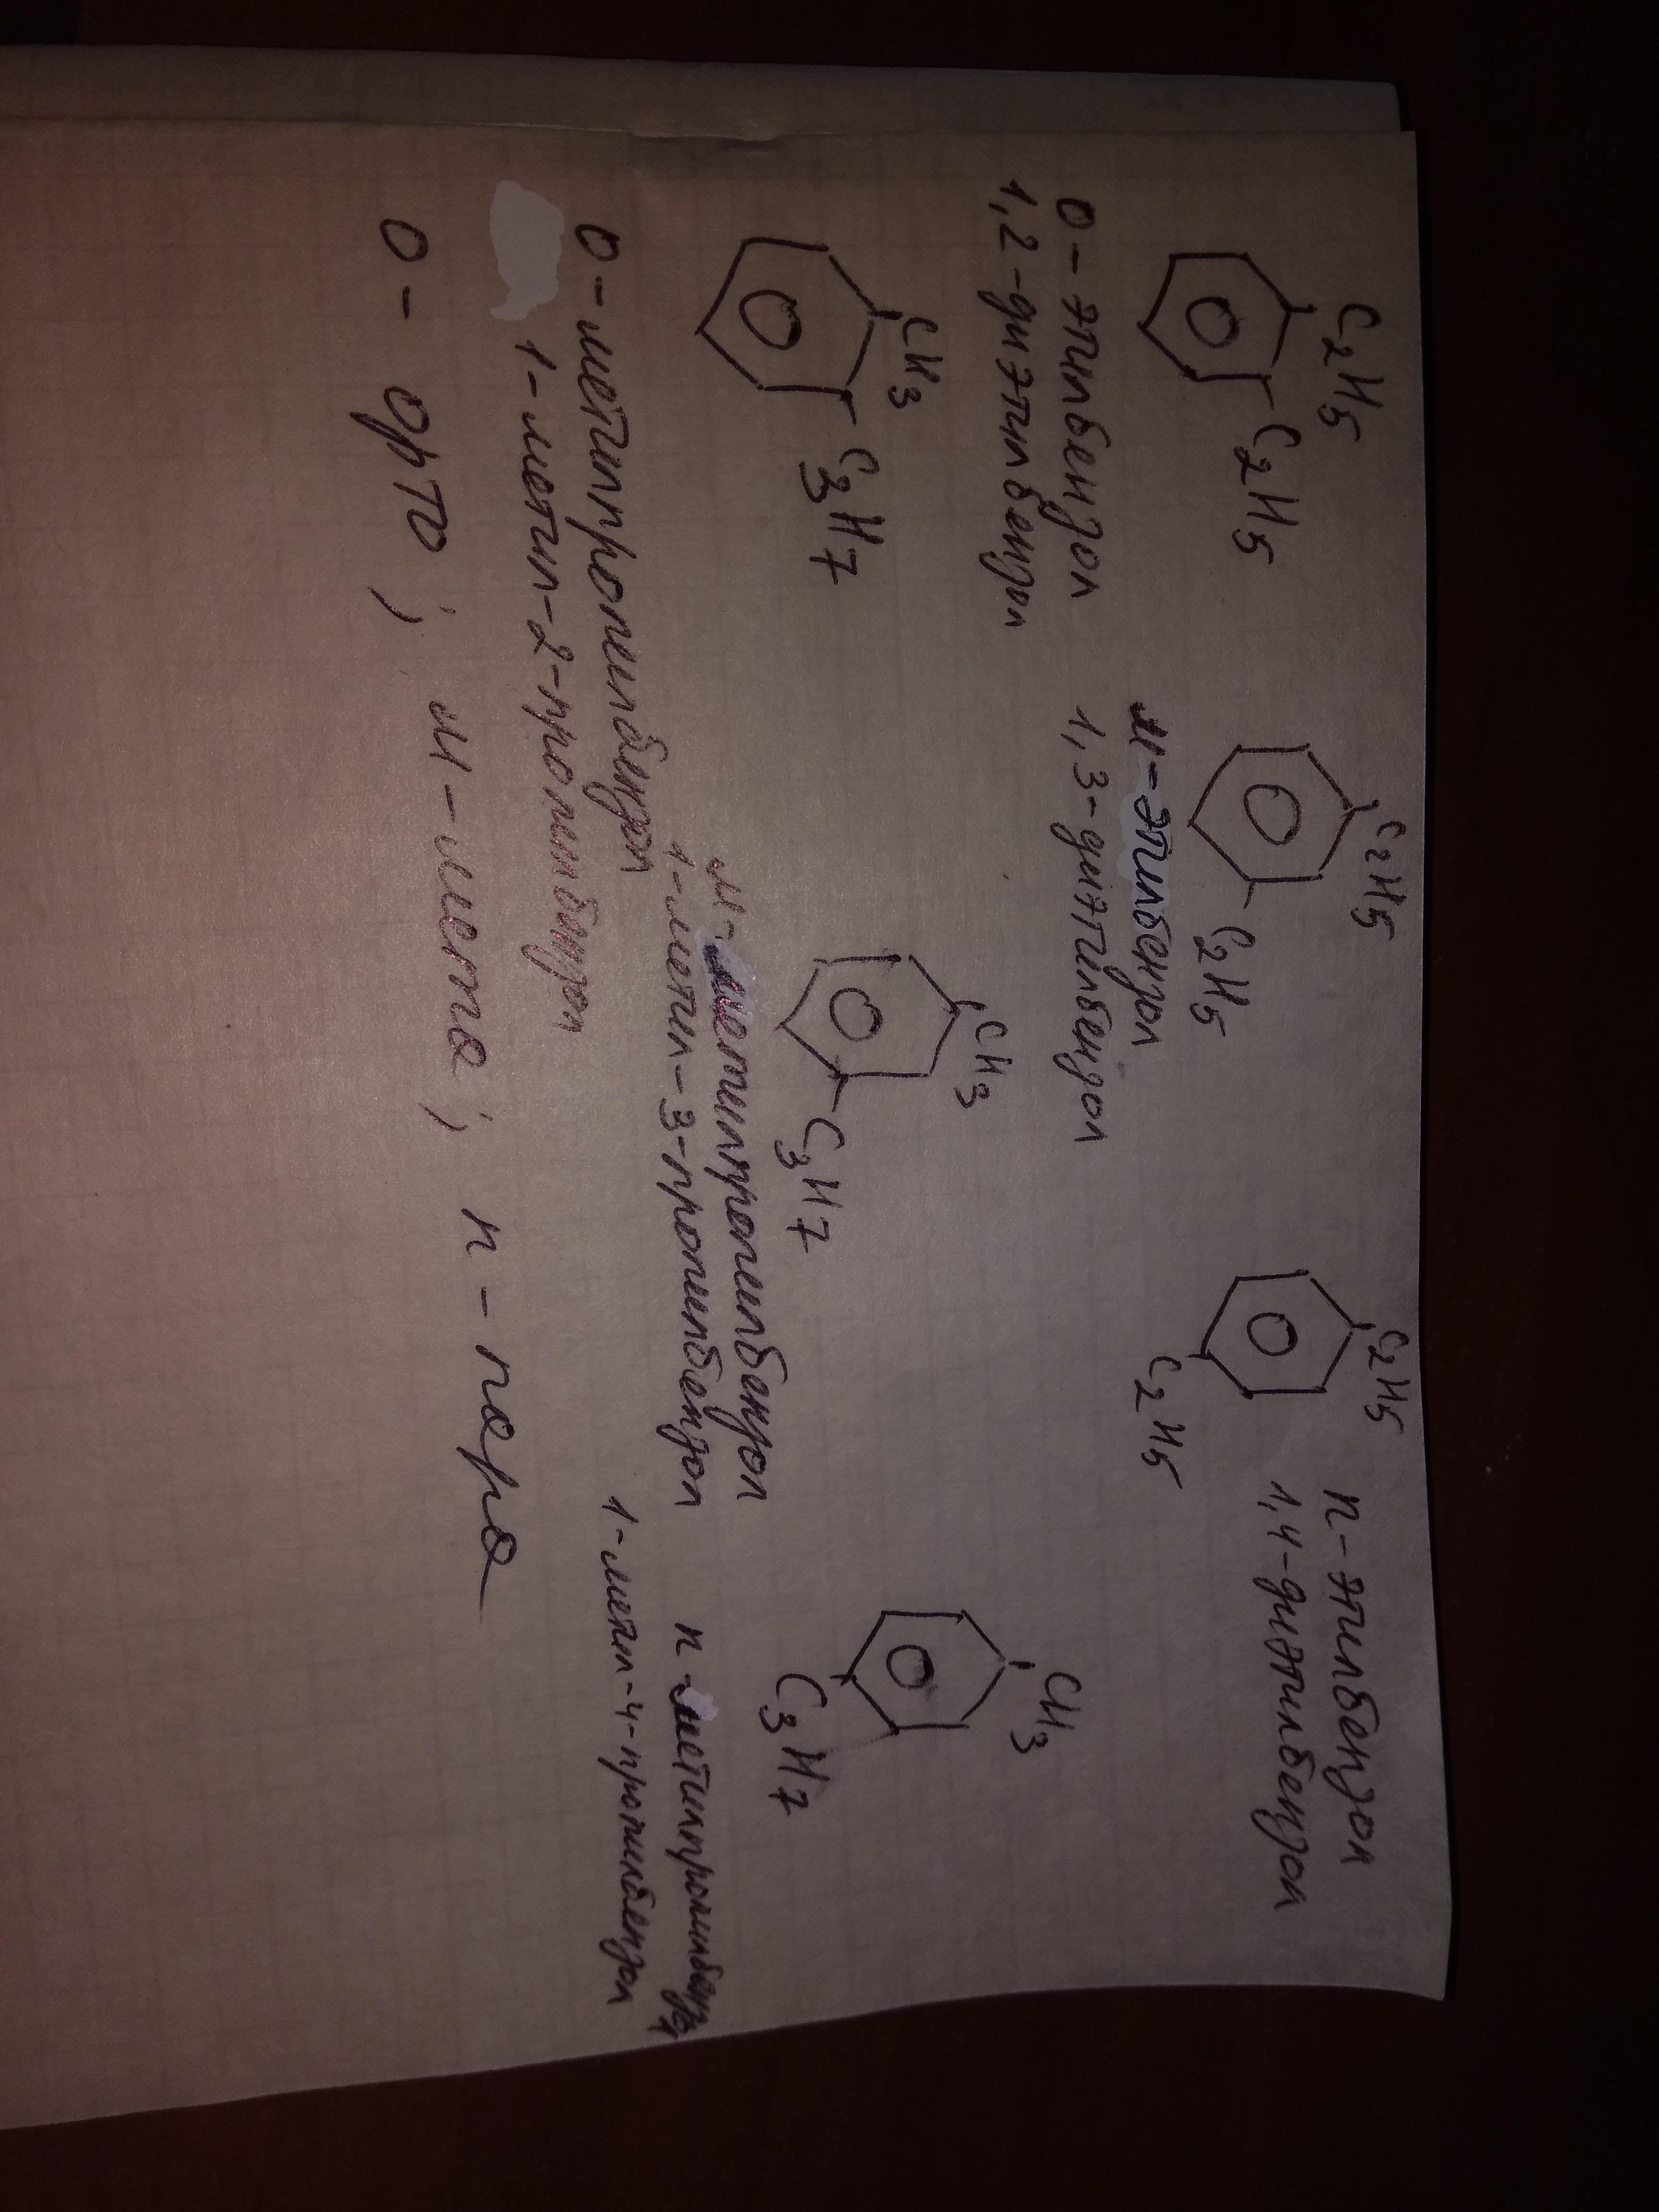 C2H5
C2H5
о-этилбензол
1,2-диэтилбензол
C2H5
C2H5
м-этилбензол
1,3-диэтилбензол
C2H5
C2H5
п-этилбензол
1,4-диэтилбензол
CH3
C3H7
о-метилпропилбензол
1-метил-2-пропилбензол
CH3
C3H7
м-метилпропилбензол
1-метил-3-пропилбензол
CH3
C3H7
п-метилпропилбензол
1-метил-4-пропилбензол
о- орто; м-мета; п-пара